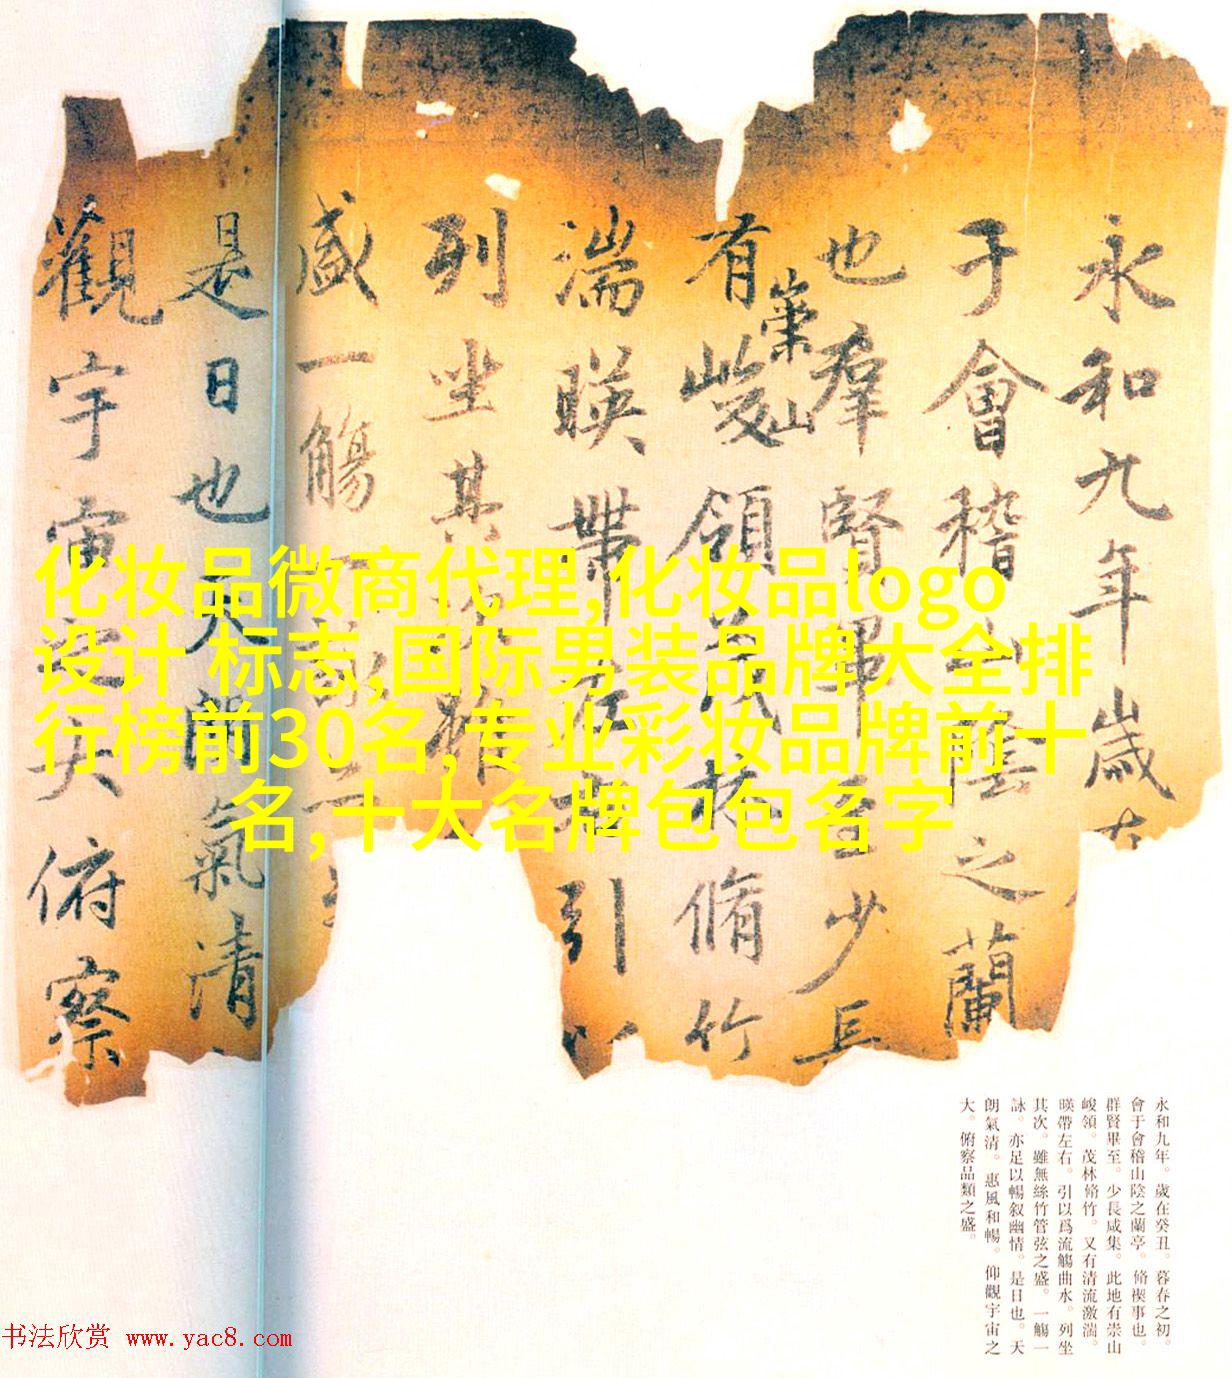 永和九年歲在
于會稽山陰之蘭
也羣賢畢至少長
有崇山峻領茂林脩竹
湍暎帶左右引以
列坐其次雖
盛一觴一詠
是日也天朗氣清
觀宇宙之大俯察
化妆品微商代理,化妆品logo
设计 标志,国际男装品牌大全排
行榜前30名,专业彩妆品牌前十
名,十大名牌包包名字
永和九年。歲在癸丑。暮春之初。
會于會稽山陰之蘭亭。脩禊事也。
群賢畢至。少長咸集。此地有崇山
峻領。茂林脩竹。又有清流激湍。
暎帶左右。引以爲流觴曲水。列坐
其次。雖無絲竹管弦之盛。一觴一
詠。亦足以暢叙幽情。是日也。天
朗氣清。惠風和暢。仰觀宇宙之
大。俯察品類之盛。
书法欣赏 www.yac8.com